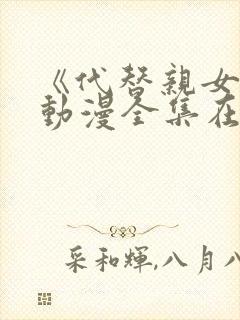 《代替親女
動漫全集在
采和輝,八月八